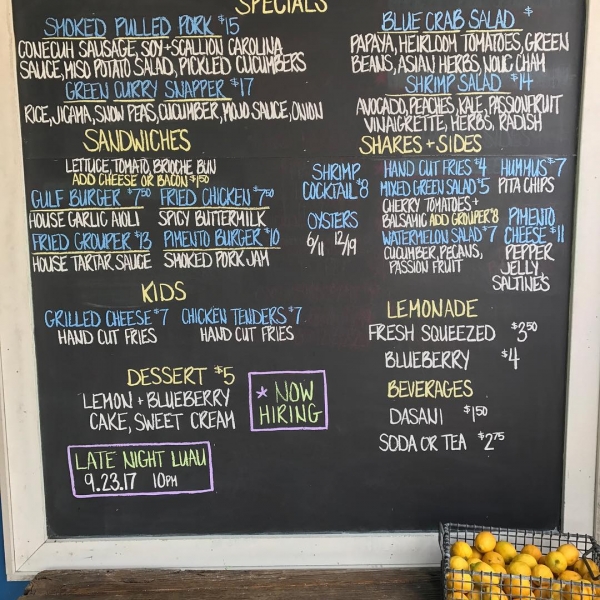 SPECIALS
SMOKED PULLED PORK $15
CONECUH SAUSAGE, SOY+SCALLION CAROLINA
SAUCE, MISO POTATO SALAD, PICKLED CUCUMBERS
GREEN CURRY SNAPPER $17
RICE, JICAMA, SNOW PEAS, CUCUMBER, MOJO SAUCE, ONION
BLUE CRAB SALAD $
PAPAYA, HEIRLOOM TOMATOES, GREEN
BEANS, ASIAN HERBS, NOUC CHAM
SHRIMP SALAD $14
AVOCADO, PEACHES, KALE, PASSIONFRUIT
VINAIGRETTE, HERBS, RADISH
SANDWICHES
LETTUCE, TOMATO, BRIOCHE BUN
ADD CHEESE OR BACON $1.50
GULF BURGER $7.50
HOUSE GARLIC AIOLI
FRIED CHICKEN $7.50
SPICY BUTTERMILK
FRIED GROUPER $13
HOUSE TARTAR SAUCE
PIMENTO BURGER $10
SMOKED PORK JAM
SHRIMP
COCKTAIL $8
OYSTERS
6/11 12/19
SHARES + SIDES
HAND CUT FRIES $4
MIXED GREEN SALAD $5
CHERRY TOMATOES +
BALSAMIC ADD GROUPER $8
WATERMELON SALAD $7
CUCUMBER, PECANS,
PASSION FRUIT
HUMMUS $7
PITA CHIPS
PIMENTO
CHEESE $11
PEPPER
JELLY
SALTINES
KIDS
GRILLED CHEESE $7
HAND CUT FRIES
CHICKEN TENDERS $7
HAND CUT FRIES
LEMONADE
FRESH SQUEEZED $3.50
BLUEBERRY $4
BEVERAGES
DASANI $1.50
SODA OR TEA $2.75
DESSERT $5
LEMON + BLUEBERRY
CAKE, SWEET CREAM
* NOW
HIRING
LATE NIGHT LUAU
9.23.17 10PM